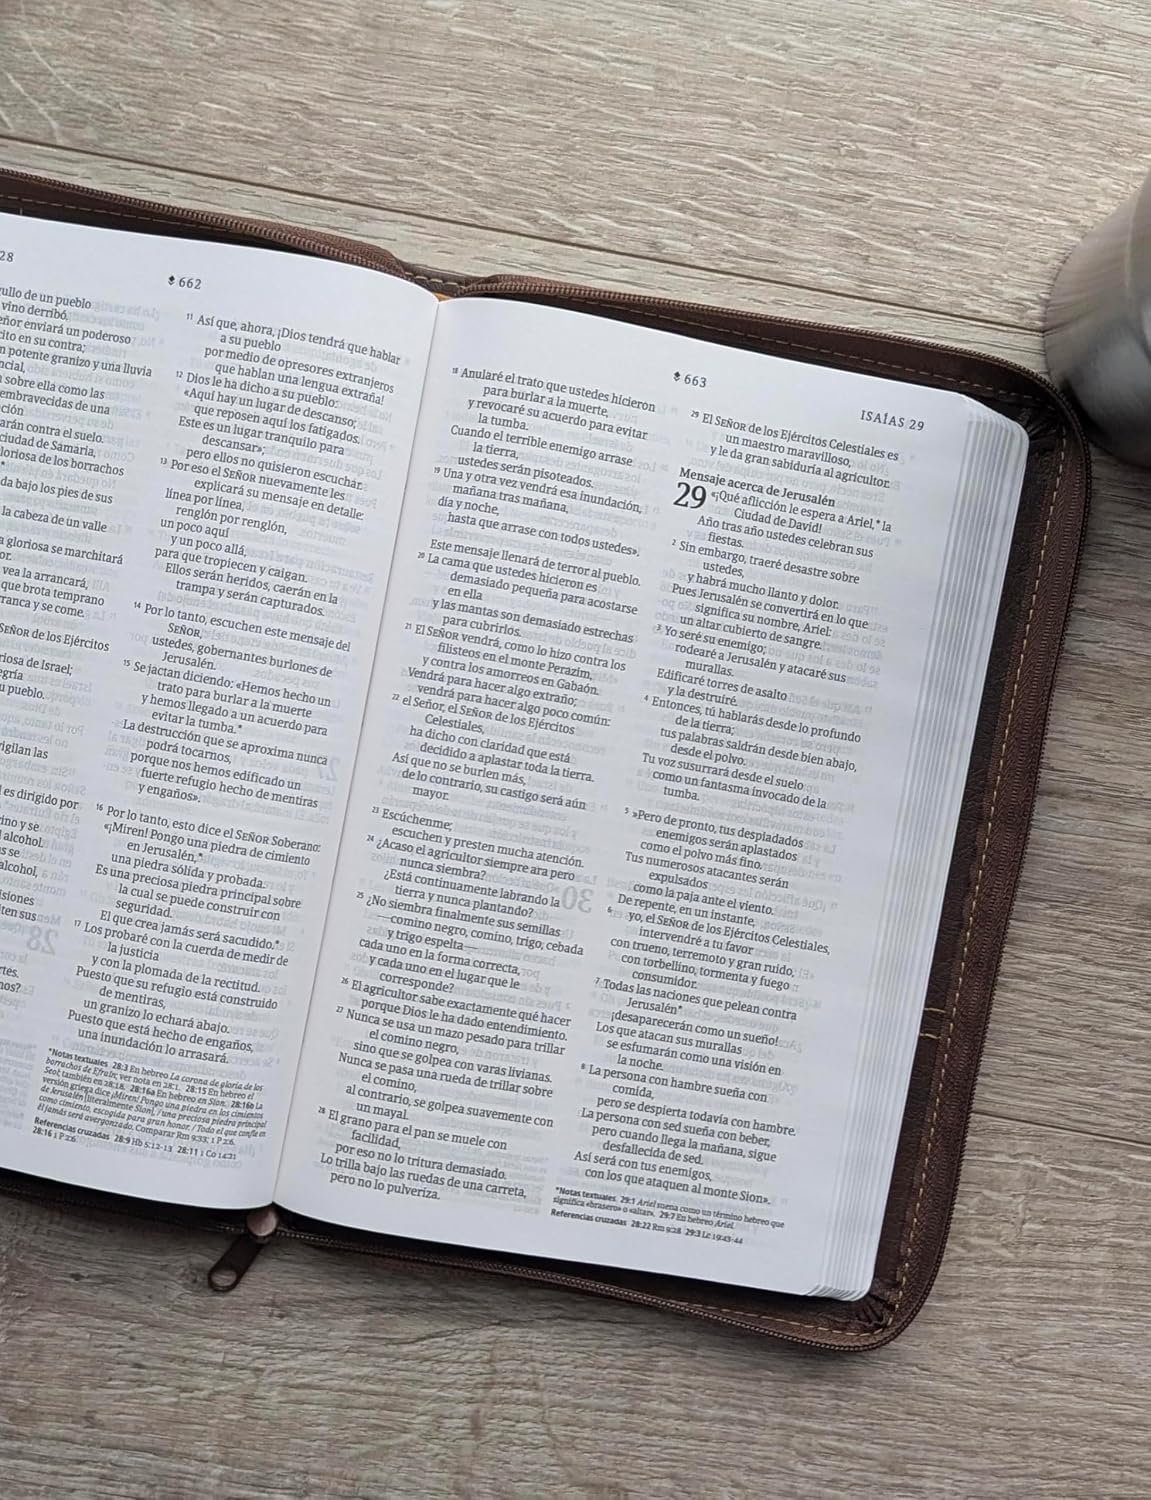 28
❖ 662
ullo de un pueblo
vino derribó.
eñor enviará un poderoso
ito en su contra;
n potente granizo y una lluvia
ncial,
sobre ella como las
embravecidas de una
ción
arán contra el suelo.
ciudad de Samaria,
loriosa de los borrachos
da bajo los pies de sus
la cabeza de un valle
a gloriosa se marchitará
or.
vea la arrancará,
que brota temprano
ranca y se come.
SEÑOR de los Ejércitos
riosa de Israel;
egría
u pueblo.
vigilan las
l es dirigido por
ino y se
alcohol.
s se
alcohol,
isiones
ten sus
rtes.
nos?
11 Así que, ahora, ¡Dios tendrá que hablar
a su pueblo
por medio de opresores extranjeros
que hablan una lengua extraña!
12 Dios le ha dicho a su pueblo:
«Aquí hay un lugar de descanso;
que reposen aquí los fatigados.
Este es un lugar tranquilo para
descansar»;
pero ellos no quisieron escuchar.
13 Por eso el SEÑOR nuevamente les
explicará su mensaje en detalle:
línea por línea,
renglón por renglón,
un poco aquí
y un poco allá,
para que tropiecen y caigan.
Ellos serán heridos, caerán en la
trampa y serán capturados.
14 Por lo tanto, escuchen este mensaje del
SEÑOR,
ustedes, gobernantes burlones de
Jerusalén.
15 Se jactan diciendo: «Hemos hecho un
trato para burlar a la muerte
y hemos llegado a un acuerdo para
evitar la tumba.*
La destrucción que se aproxima nunca
podrá tocarnos,
porque nos hemos edificado un
fuerte refugio hecho de mentiras
y engaños».
16 Por lo tanto, esto dice el SEÑOR Soberano:
«¡Miren! Pongo una piedra de cimiento
en Jerusalén,*
una piedra sólida y probada.
Es una preciosa piedra principal sobre
la cual se puede construir con
seguridad.
El que crea jamás será sacudido.*
17 Los probaré con la cuerda de medir de
la justicia
y con la plomada de la rectitud.
Puesto que su refugio está construido
de mentiras,
un granizo lo echará abajo.
Puesto que está hecho de engaños,
una inundación lo arrasará.
*Notas textuales 28:3 En hebreo La corona de gloria de los
borrachos de Efraín; ver nota en 28:1. 28:15 En hebreo el
Seol; también en 28:18. 28:16a En hebreo en Sion. 28:16b La
versión griega dice ¡Miren! Pongo una piedra en los cimientos
de Jerusalén [literalmente Sion], / una preciosa piedra principal
como cimiento, escogida para gran honor. / Todo el que confíe en
Él jamás será avergonzado. Comparar Rm 9:33; 1 P 2:6.
Referencias cruzadas 28:9 Hb 5:12-13 28:11 1 Co 14:21
28:16 1 P 2:6
❖ 663
ISAÍAS 29
18 Anularé el trato que ustedes hicieron
para burlar a la muerte,
y revocaré su acuerdo para evitar
la tumba.
Cuando el terrible enemigo arrase
la tierra,
ustedes serán pisoteados.
19 Una y otra vez vendrá esa inundación,
mañana tras mañana,
día y noche,
hasta que arrase con todos ustedes».
Este mensaje llenará de terror al pueblo.
20 La cama que ustedes hicieron es
demasiado pequeña para acostarse
en ella
y las mantas son demasiado estrechas
para cubrirlos.
21 El SEÑOR vendrá, como lo hizo contra los
filisteos en el monte Perazim,
y contra los amorreos en Gabaón.
Vendrá para hacer algo extraño;
vendrá para hacer algo poco común:
22 el Señor, el SEÑOR de los Ejércitos
Celestiales,
ha dicho con claridad que está
decidido a aplastar toda la tierra.
Así que no se burlen más,
de lo contrario, su castigo será aún
mayor.
23 Escúchenme;
escuchen y presten mucha atención.
24 ¿Acaso el agricultor siempre ara pero
nunca siembra?
¿Está continuamente labrando la
tierra y nunca plantando?
25 ¿No siembra finalmente sus semillas
—comino negro, comino, trigo, cebada
y trigo espelta—
cada uno en la forma correcta,
y cada uno en el lugar que le
corresponde?
26 El agricultor sabe exactamente qué hacer
porque Dios le ha dado entendimiento.
27 Nunca se usa un mazo pesado para trillar
el comino negro,
sino que se golpea con varas livianas.
Nunca se pasa una rueda de trillar sobre
el comino,
al contrario, se golpea suavemente con
un mayal.
28 El grano para el pan se muele con
facilidad,
por eso no lo tritura demasiado.
Lo trilla bajo las ruedas de una carreta,
pero no lo pulveriza.
29 El SEÑOR de los Ejércitos Celestiales es
un maestro maravilloso,
y le da gran sabiduría al agricultor.
Mensaje acerca de Jerusalén
29 «¡Qué aflicción le espera a Ariel,* la
Ciudad de David!
Año tras año ustedes celebran sus
fiestas.
2 Sin embargo, traeré desastre sobre
ustedes,
y habrá mucho llanto y dolor.
Pues Jerusalén se convertirá en lo que
significa su nombre, Ariel:
un altar cubierto de sangre.
3 Yo seré su enemigo;
rodearé a Jerusalén y atacaré sus
murallas.
Edificaré torres de asalto
y la destruiré.
4 Entonces, tú hablarás desde lo profundo
de la tierra;
tus palabras saldrán desde bien abajo,
desde el polvo.
Tu voz susurrará desde el suelo
como un fantasma invocado de la
tumba.
5 »Pero de pronto, tus despiadados
enemigos serán aplastados
como el polvo más fino.
Tus numerosos atacantes serán
expulsados
como la paja ante el viento.
De repente, en un instante,
6 yo, el SEÑOR de los Ejércitos Celestiales,
intervendré a tu favor
con trueno, terremoto y gran ruido,
con torbellino, tormenta y fuego
consumidor.
7 Todas las naciones que pelean contra
Jerusalén*
¡desaparecerán como un sueño!
Los que atacan sus murallas
se esfumarán como una visión en
la noche.
8 La persona con hambre sueña con
comida,
pero se despierta todavía con hambre.
La persona con sed sueña con beber,
pero cuando llega la mañana, sigue
desfallecida de sed.
Así será con tus enemigos,
con los que ataquen al monte Sion».
*Notas textuales 29:1 Ariel suena como un término hebreo que
significa «brasero» o «altar». 29:7 En hebreo Ariel.
Referencias cruzadas 28:22 Rm 9:28 29:3 Lc 19:43-44